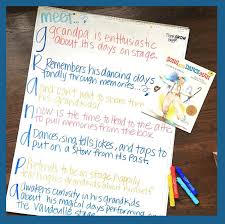 meet...
grandpa is enthusiastic
about his days on stage.
Remembers his dancing days
fondly through memories...
and can't wait to share them
his grandkids!
now is the time to lead to the attic
to pull memories from the
Dances, sings, tells jokes, and taps to
put on a show from his past.
Pretends to be on stage happily
his grandkids
awakens curiosity in his grandkids
about his magical days performing on
the vaudville stage
SONG AND DANCE MAN